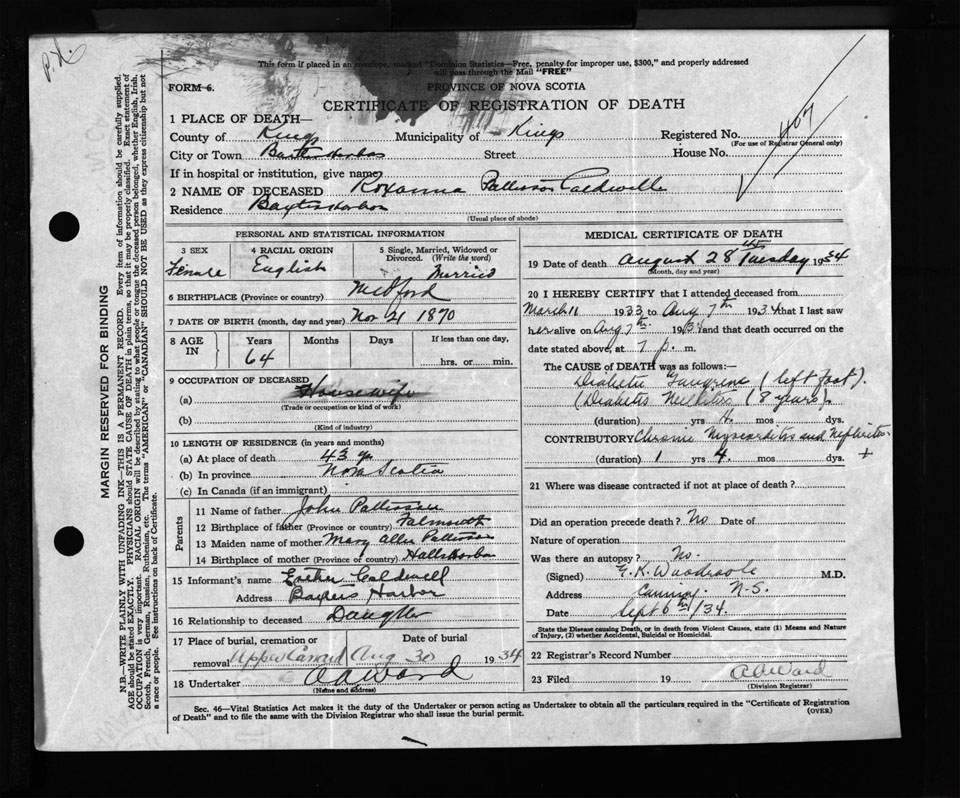 P.X.
This form if placed in an envelope, marked "Dominion Statistics—Free, penalty for improper use, $300," and properly addressed
will pass through the Mail "FREE"
FORM 6.
PROVINCE OF NOVA SCOTIA
CERTIFICATE OF REGISTRATION OF DEATH
1 PLACE OF DEATH—
County of Kings Municipality of Kings Registered No. 407
(For use of Registrar General only)
City or Town Street House No.
If in hospital or institution, give name
2 NAME OF DECEASED Roxanna Patterson Caldwell
Residence Baxters Harbor
(Usual place of abode)
PERSONAL AND STATISTICAL INFORMATION
3 SEX 4 RACIAL ORIGIN 5 Single, Married, Widowed or Divorced. (Write the word)
Female English Married
6 BIRTHPLACE (Province or country) Medford
7 DATE OF BIRTH (month, day and year) Nov 21 1870
8 AGE IN Years Months Days If less than one day,
64 hrs. or min.
9 OCCUPATION OF DECEASED
(a) Housewife
(Trade or occupation or kind of work)
(b)
(Kind of industry)
10 LENGTH OF RESIDENCE (in years and months)
(a) At place of death 43 yr
(b) In province Nova Scotia
(c) In Canada (if an immigrant)
Parents
11 Name of father John Patterson
12 Birthplace of father (Province or country) Falmouth
13 Maiden name of mother Mary Allen Patterson
14 Birthplace of mother (Province or country) Halls Harbor
15 Informant's name Caldwell
Address Baxters Harbor
16 Relationship to deceased Daughter
17 Place of burial, cremation or removal Date of burial
Upper Canard Aug 30 1934
18 Undertaker A A Ward
(Name and address)
MEDICAL CERTIFICATE OF DEATH
19 Date of death August 28th Tuesday 1934
(Month, day and year)
20 I HEREBY CERTIFY that I attended deceased from
March 11 1933 to Aug 7th 1934 that I last saw
her alive on Aug 7th 1934 and that death occurred on
date stated above, at 7 p. m.
The CAUSE of DEATH was as follows:—
Diabetic Gangrene (left foot).
(Diabetes Mellitus (8 years).
(duration) yrs mos dys.
CONTRIBUTORY Chronic Myocarditis and Nephritis
(duration) 1 yrs 4 mos dys. +
21 Where was disease contracted if not at place of death?
Did an operation precede death? No Date of
Nature of operation
Was there an autopsy? No.
(Signed) M.D.
Address Canning N.S.
Date Sept 6th/34.
State the Disease causing Death, or in death from Violent Causes, state (1) Means and Nature
of Injury, (2) whether Accidental, Suicidal or Homicidal.
22 Registrar's Record Number
23 Filed 19 A A Ward
(Division Registrar)
Sec. 46—Vital Statistics Act makes it the duty of the Undertaker or person acting as Undertaker to obtain all the particulars required in the "Certificate of Registration
of Death" and to file the same with the Division Registrar who shall issue the burial permit. (OVER)
MARGIN RESERVED FOR BINDING
N.B.—WRITE PLAINLY WITH UNFADING INK—THIS IS A PERMANENT RECORD. Every item of information should be carefully supplied.
AGE should be stated EXACTLY. PHYSICIANS should STATE CAUSE OF DEATH in plain terms, so that it may be properly classified. Exact statement of
OCCUPATION is very important. RACIAL ORIGIN will be described by stating to what people or tongue the deceased person belonged, whether English, Irish,
Scotch, French, German, Russian, Ruthenian, etc. The terms "AMERICAN" or "CANADIAN" SHOULD NOT BE USED as they express citizenship but not
a race or people. See instructions on back of Certificate.